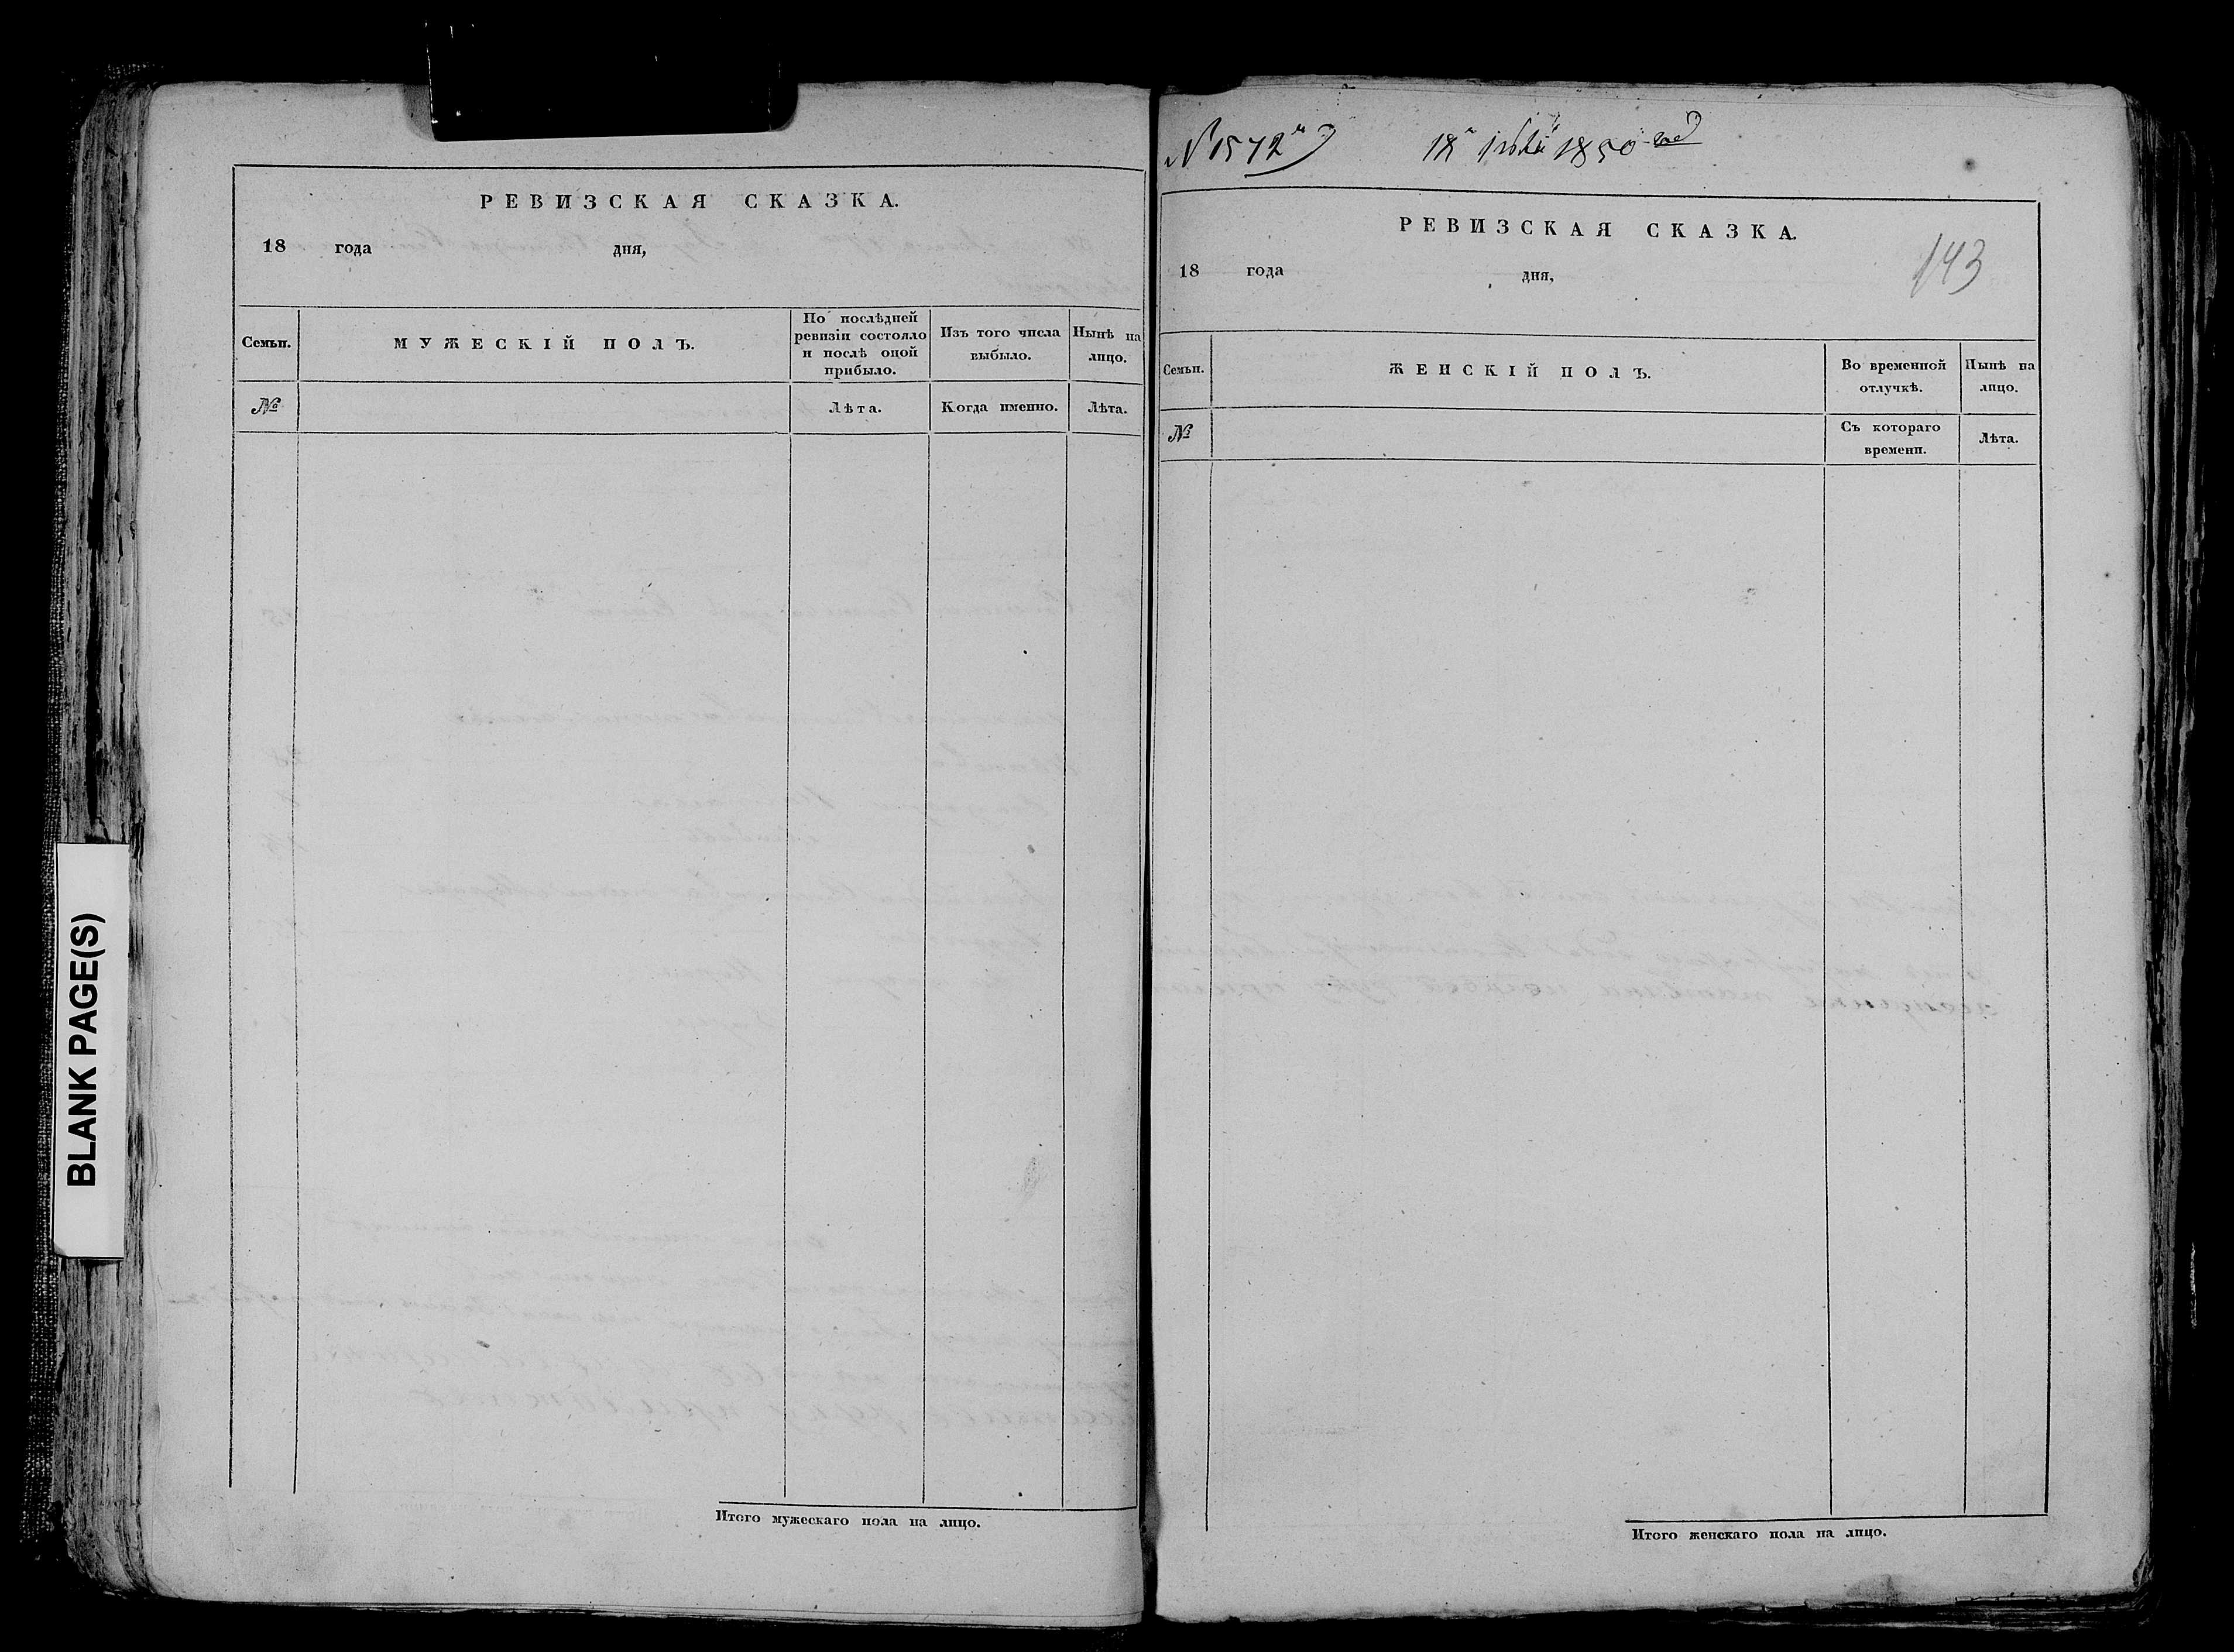 РЕВИЗСКАЯ СКАЗКА.
18 года дня,
Семьи.
МУЖЕСКІЙ ПОЛЪ.
По послѣдней
ревизіи состояло
и послѣ оной
прибыло.
Изъ того числа
выбыло.
Нынѣ на
лицо.
№
Лѣта.
Когда именно.
Лѣта.
Итого мужескаго пола на лицо.
BLANK PAGE(S)
№ 1572
18 1850 год
РЕВИЗСКАЯ СКАЗКА.
143
18 года дня,
Семьи.
ЖЕНСКІЙ ПОЛЪ.
Во временной
отлучкѣ.
Нынѣ на
лицо.
№
Съ котораго
времени.
Лѣта.
Итого женскаго пола на лицо.